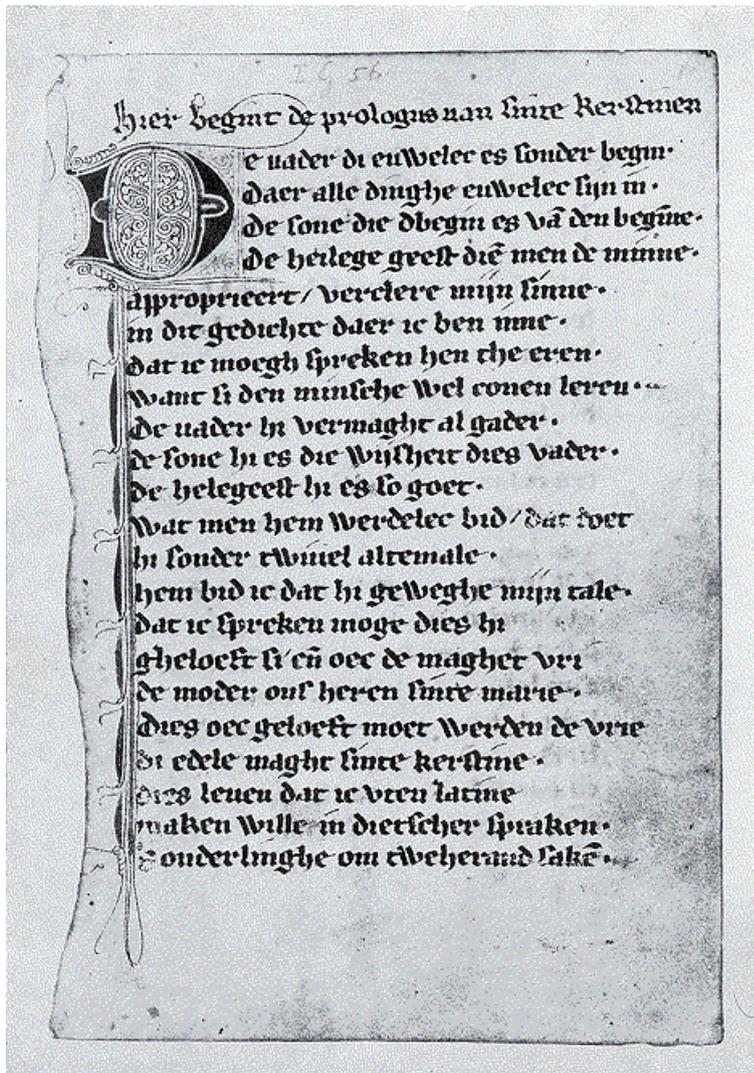 I G 56
hier begint de prologus uan sinte kerstinen
De uader di euwelec es sonder begin·
daer alle dinghe euwelec sijn in·
de sone die dbegin es vā den begīne·
de heilege geest diē men de minne·
approprieert / verclere mijn sinne·
in dit gedichte daer ic ben inne·
dat ic moegh spreken hen the eren·
want si den minsche wel conen leren·
De uader hi vermaght al gader·
de sone hi es die wijsheit dies vader·
de helegeest hi es so goet·
wat men hem werdelec bid / dat doet
hi sonder twiuel altemale·
hem bid ic dat hi geweghe mijn tale·
dat ic spreken moge dies hi
gheloeft si / eñ oec de maghet vri
de moder ons heren sinte marie·
dies oec geloeft moet werden de vrie
di edele maght sinte kerstine·
dies leuen dat ic vten latine
maken wille in dietscher spraken·
Sonderlinghe om tweherand sakē·